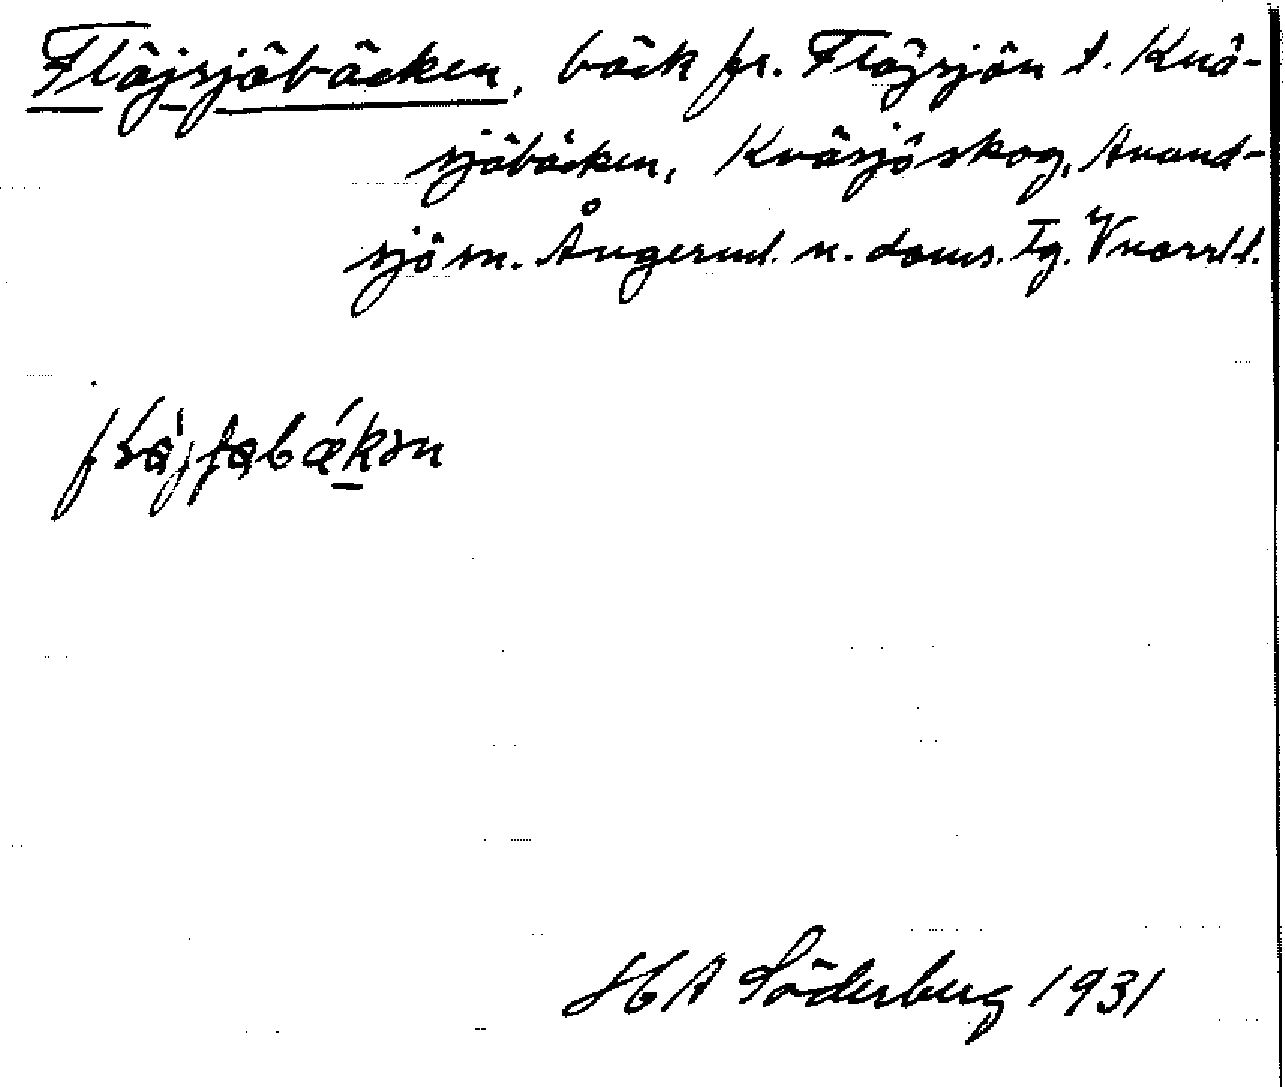 Flöjsjöbäcken, bäck fr. Flöjsjön t. Kvä-
sjöbäcken, Kväsjöskog, Anund-
sjö sn. Ångerml. n. doms. Tg. Vnorrl l.
HA Söderberg 1931